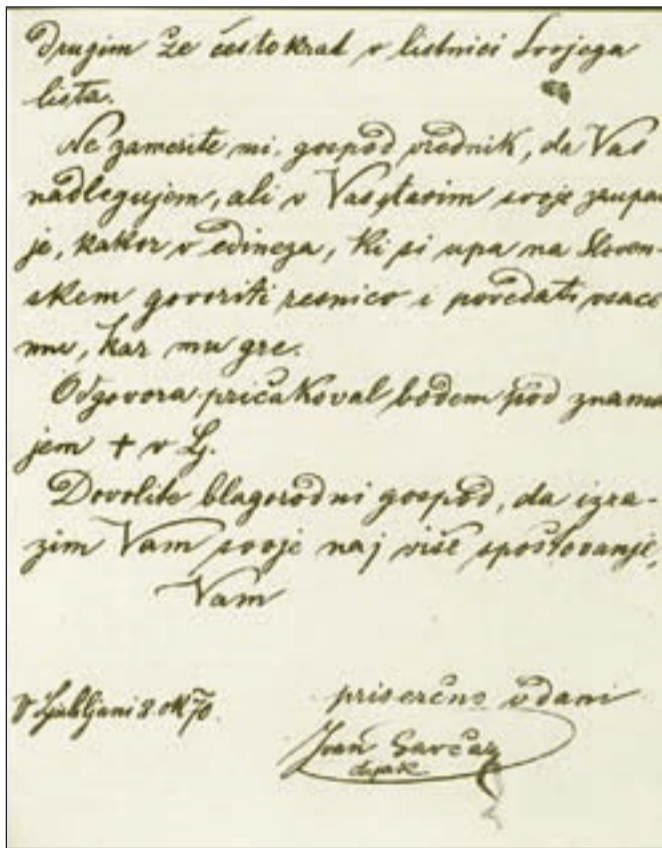 drugim že čestokrat v listnici Svojega
lista.
Ne zamerite mi, gospod vrednik, da Vas
nadlegujem, ali v Vas stavim svoje zaupa
je, kakor v edinega, ki si upa na Sloven-
skem govoriti resnico i povedati vsace
mu, kar mu gre.
Odgovora pričakoval bodem pod znamo
jem + v Lj.
Dovolite blagorodni gospod, da izra-
zim Vam svoje naj više spoštovanje,
Vam
priserčno vdani
V Ljubljani 8 okt 70.
Ivan
dijak